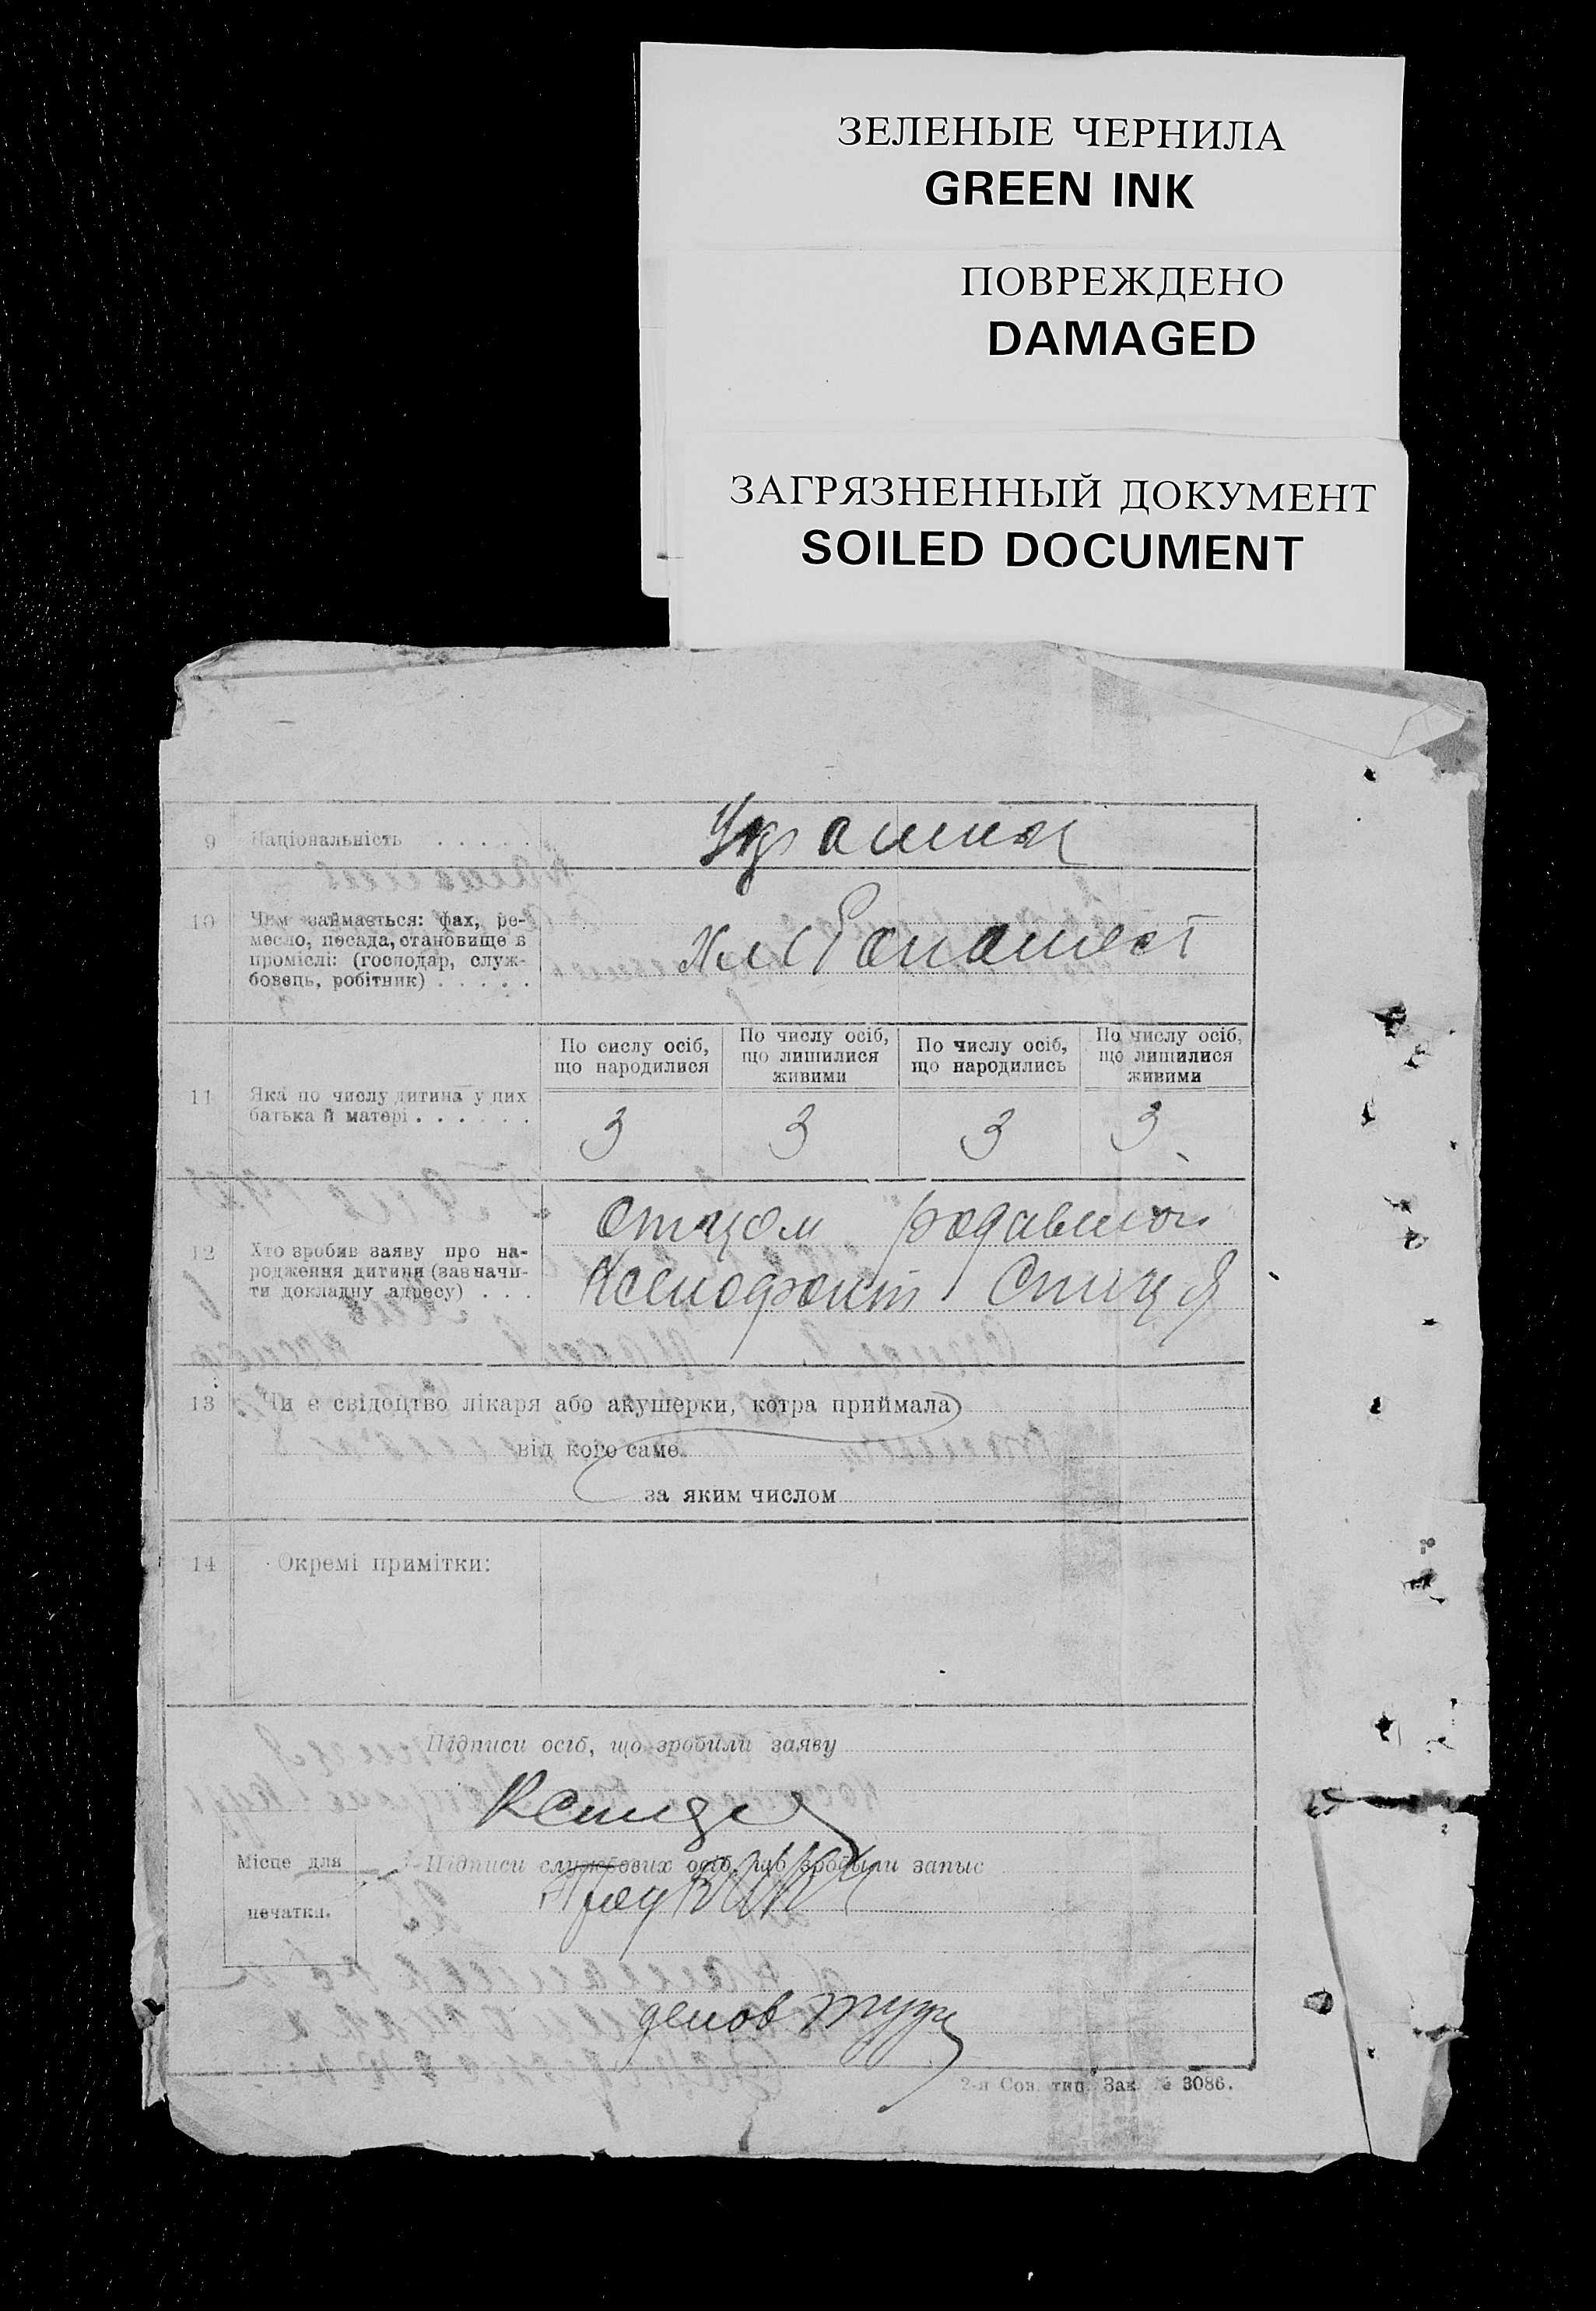 ЗЕЛЕНЫЕ ЧЕРНИЛА
GREEN INK
ПОВРЕЖДЕНО
DAMAGED
ЗАГРЯЗНЕННЫЙ ДОКУМЕНТ
SOILED DOCUMENT
9 Національність . . . . .
10 Чим займається: фах, ре-
месло, посада, становище в
промислі: (господар, служ-
бовець, робітник) . . . . .
11 Яка по числу дитина у них
батька й матері . . . . . .
По сислу осіб,
що народилися
По числу осіб,
що лишилися
живими
По числу осіб,
що народились
По числу осіб,
що лишилися
живими
3 3 3 3
12 Хто зробив заяву про на-
родження дитини (зазначи-
ти докладну адресу) . . .
Отцом
Ксенофонт Спица
13 Чи є свідоцтво лікаря або акушерки, котра приймала
від кого саме
за яким числом
14 Окремі примітки:
Підписи осіб, що зробили заяву
КСпица
Місце для
печатки.
Підписи службових осіб, що зробыли запис
2-я Сов. тип. Зак. № 3086.